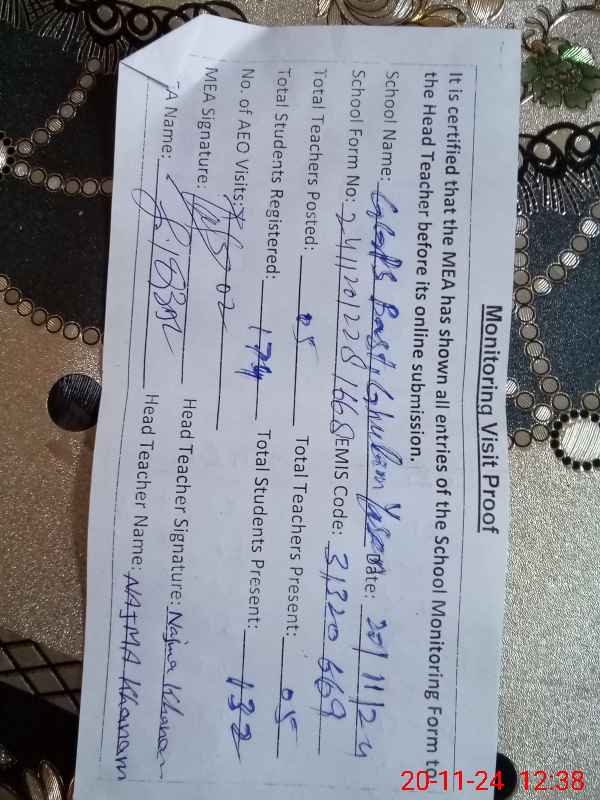 Monitoring Visit Proof
It is certified that the MEA has shown all entries of the School Monitoring Form to
the Head Teacher before its online submission.
School Name: Basti Ghulam Date: 20/11/24
School Form No: EMIS Code: 31320669
Total Teachers Posted: 05 Total Teachers Present: 05
Total Students Registered: 174 Total Students Present: 132
No. of AEO Visits: 02
MEA Signature: Head Teacher Signature: Najma Khanam
A Name: Head Teacher Name: NAJMA Khanam
20-11-24 12:38